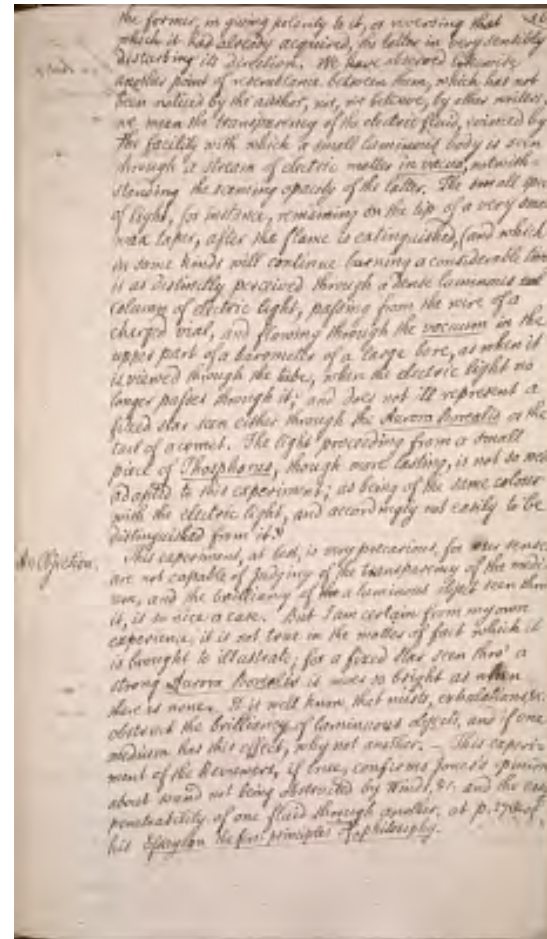 the former, in giving polarity to it, or reversing that
which it had already acquired, the latter in very sensibly
disturbing its direction. We have observed likewise
another point of resemblance between them, which has not
been noticed by the author, nor, we believe, by other writers,
we mean the transparency of the electric fluid, evinced by
the facility with which a small luminous body is seen
through a stream of electric matter in vacuo, notwith-
standing the seeming opacity of the latter. The small spec
of light, for instance, remaining on the tip of a very small
wax taper, after the flame is extinguished, (and which
in some kinds will continue burning a considerable time
is as distinctly perceived through a dense luminous
column of electric light, passing from the wire of a
charged vial, and flowing through the vacuum in the
upper part of a barometer of a large bore, as when it
is viewed through the tube, when the electric light no
longer passes through it; and does not ill represent a
fixed star seen either through the Aurora borealis or the
tail of a comet. The light proceeding from a small
piece of Phosphorus, though more lasting, is not so well
adapted to this experiment; as being of the same colour
with the electric light, and accordingly not easily to be
distinguished from it.
An Objection.
This experiment, at best, is very precarious, for our senses
are not capable of judging of the transparency of the medi-
um, and the brilliancy of a luminous object seen thro
it, in so nice a case. But I am certain from my own
experience, it is not true in the matter of fact which it
is brought to illustrate; for a fixed star seen thro' a
strong Aurora Borealis is not so bright as when
there is none. It is well known that mists, exhalations &c.
obstruct the brilliancy of luminous objects, and if one
medium has this effect, why not another. — This experi-
ment of the Reviewers, if true, confirms Jones's opinion
about sound not being obstructed by winds, &c. and the easy
penetrability of one fluid through another. at p. of
his Essay on the first principles of philosophy.